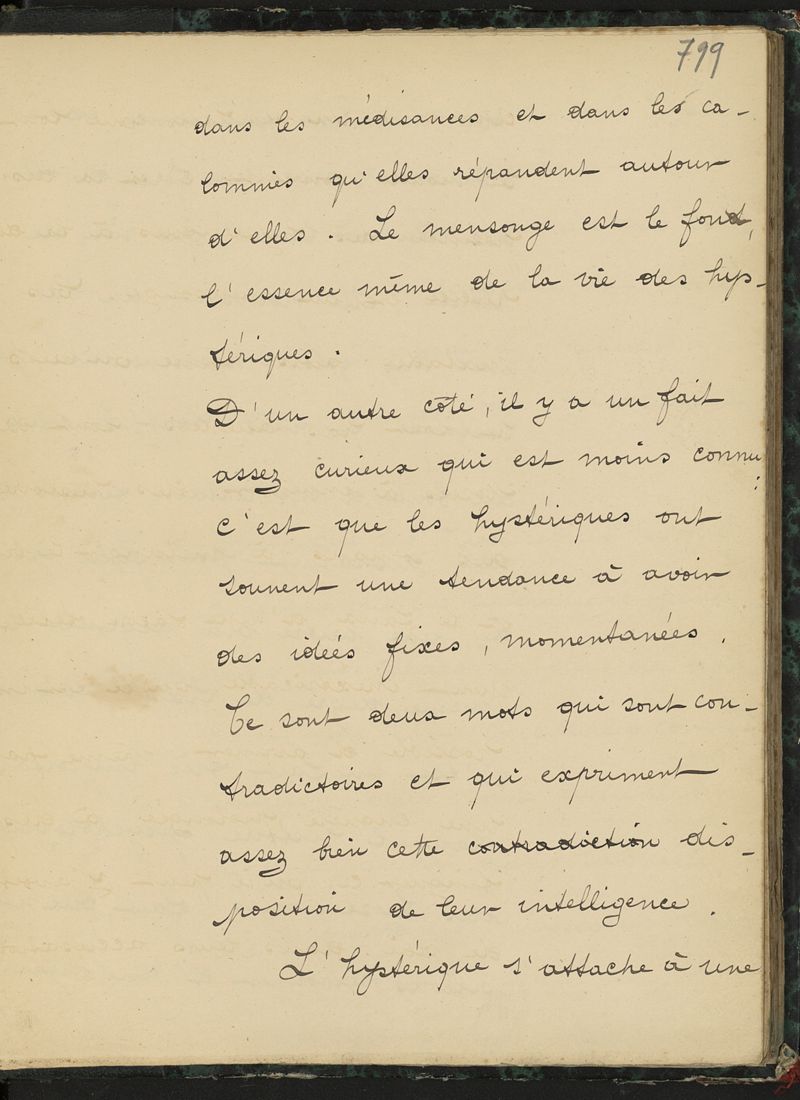 799
dans les médisances et dans les ca-
lomnies qu'elles répandent autour
d'elles. Le mensonge est le fond,
l'essence même de la vie des hys-
tériques.
D'un autre côté, il y a un fait
assez curieux qui est moins connu :
C'est que les hystériques ont
souvent une tendance à avoir
des idées fixes, momentanées.
Ce sont deux mots qui sont con-
tradictoires et qui expriment
assez bien cette contradiction dis-
position de leur intelligence.
L'hystérique s'attache à une